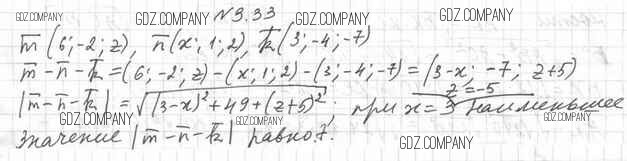 GDZ.COMPANY
№ 9.33 GDZ.COMPANY GDZ.COMPANY
m̅ (6; -2; z), n̅ (x; 1; 2), k̅ (3; -4; -7)
m̅ - n̅ - k̅ = (6; -2; z) - (x; 1; 2) - (3; -4; -7) = (3-x; -7; z+5)
|m̅ - n̅ - k̅| = √((3-x)² + 49 + (z+5)²); при x = 3 z = -5 наименьшее
GDZ.COMPANY GDZ.COMPANY GDZ.COMPANY
значение |m̅ - n̅ - k̅| равно 7.
GDZ.COMPANY